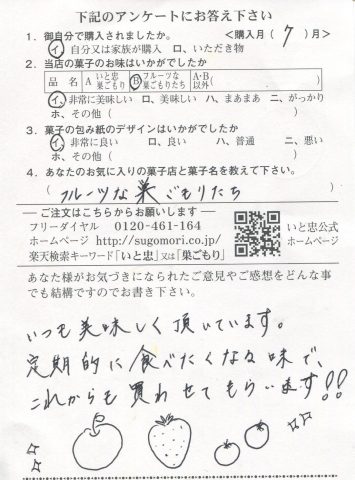 下記のアンケートにお答え下さい
1. 御自分で購入されましたか。　<購入月( 7 )月>
イ、自分又は家族が購入　ロ、いただき物
2. 当店の菓子のお味はいかがでしたか
品 名 A いと忠巣ごもり B フルーツな巣ごもりたち A・B以外( )
イ、非常に美味しい　ロ、美味しい　ハ、まあまあ　ニ、がっかり
ホ、その他(　)
3. 菓子の包み紙のデザインはいかがでしたか
イ、非常に良い　ロ、良い　ハ、普通　ニ、悪い
ホ、その他(　)
4. あなたのお気に入りの菓子店と菓子名を教えて下さい。
( フルーツな巣ごもりたち )
ご注文はこちらからお願いします
フリーダイヤル　0120-461-164
ホームページ http://sugomori.co.jp/
楽天検索キーワード「いと忠」又は「巣ごもり」
いと忠公式
ホームページ
あなた様がお気づきになられたご意見やご感想をどんな事
でも結構ですのでお書き下さい。
いつも美味しく頂いています。
定期的に食べたくなる味で、
これからも買わせてもらいます!!